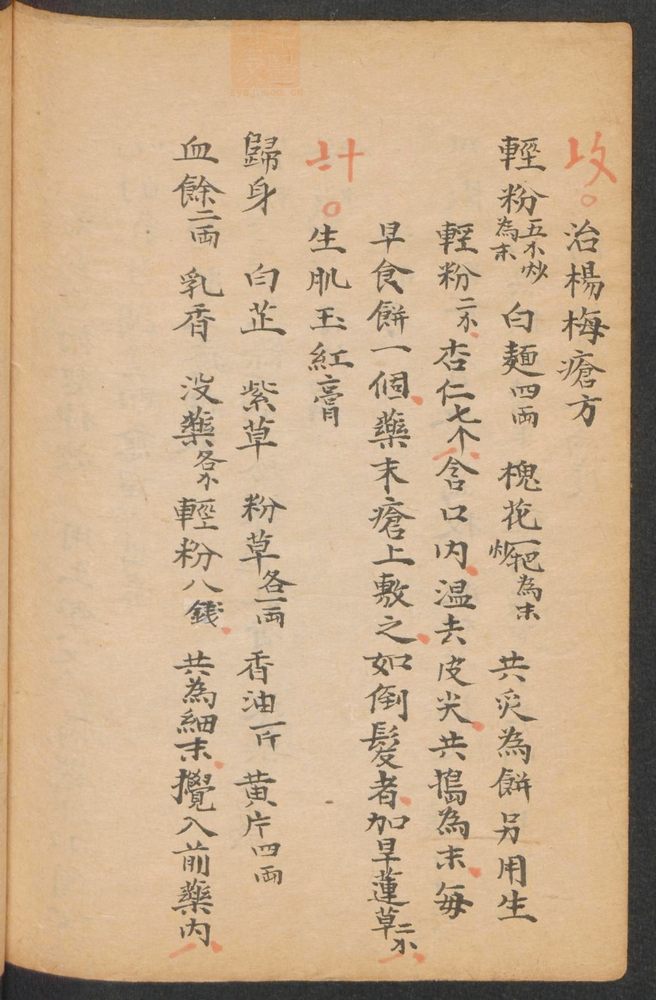 攻。治楊梅瘡方
輕粉五分炒為末 白麵四両 槐花一把炒為末 共炙為餅另用生
輕粉二分杏仁七个含口内温去皮尖共搗為末每
早食餅一個藥末瘡上敷之如倒髮者加旱蓮草二分
計。生肌玉紅膏
歸身 白芷 紫草 粉草各一両 香油一斤 黄片四両
血餘二両 乳香 没藥各分 輕粉八錢 共為細末攪入前藥内